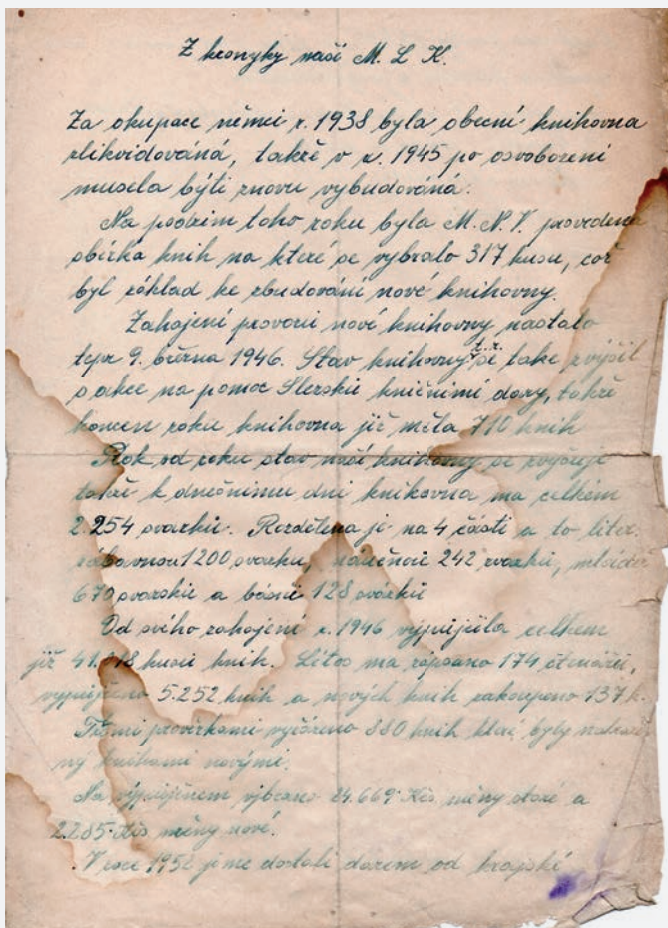 Z kronyky naší M. L. K.
Za okupace němci r. 1938 byla obecní knihovna
zlikvidováná, takže v r. 1945 po osvobození
musela býti znovu vybudováná.
Na podzim toho roku byla M. N. V. provedena
sbírka knih na které se vybralo 317 kusu, což
byl základ ke zbudování nové knihovny.
Zahájení provozu nové knihovny nastalo
tepr 9. března 1946. Stav knihovny t. r. se take zvýšil
s akce na pomoc Slezsku knižnimi dary, takže
koncem roku knihovna již měla 710 knih
Rok od roku stav naší knihovny se zvyšuje
takže k dnešnimu dni knihovna ma celkém
2.254 svazků. Rozdělena je na 4 části a to liter.
zábavnou 1200 svazku, naučnou 242 svazků, mládež
670 svazků a básní 128 svázků
Od svého zahájení r. 1946 výpujčila celkem
již kusů knih. Létos ma zápsano 174 čtenářů,
vypujčeno 5.252 knih a nových knih zakoupeno 137 k.
prověrkami vyřázeno 880 knih které byly nahraže-
ny knihami novými.
Na výpujčnem výbrano 24.669 Kčs. měny staré a
2.285 Kčs měny nové.
V roce jsme dostali darem od krajské